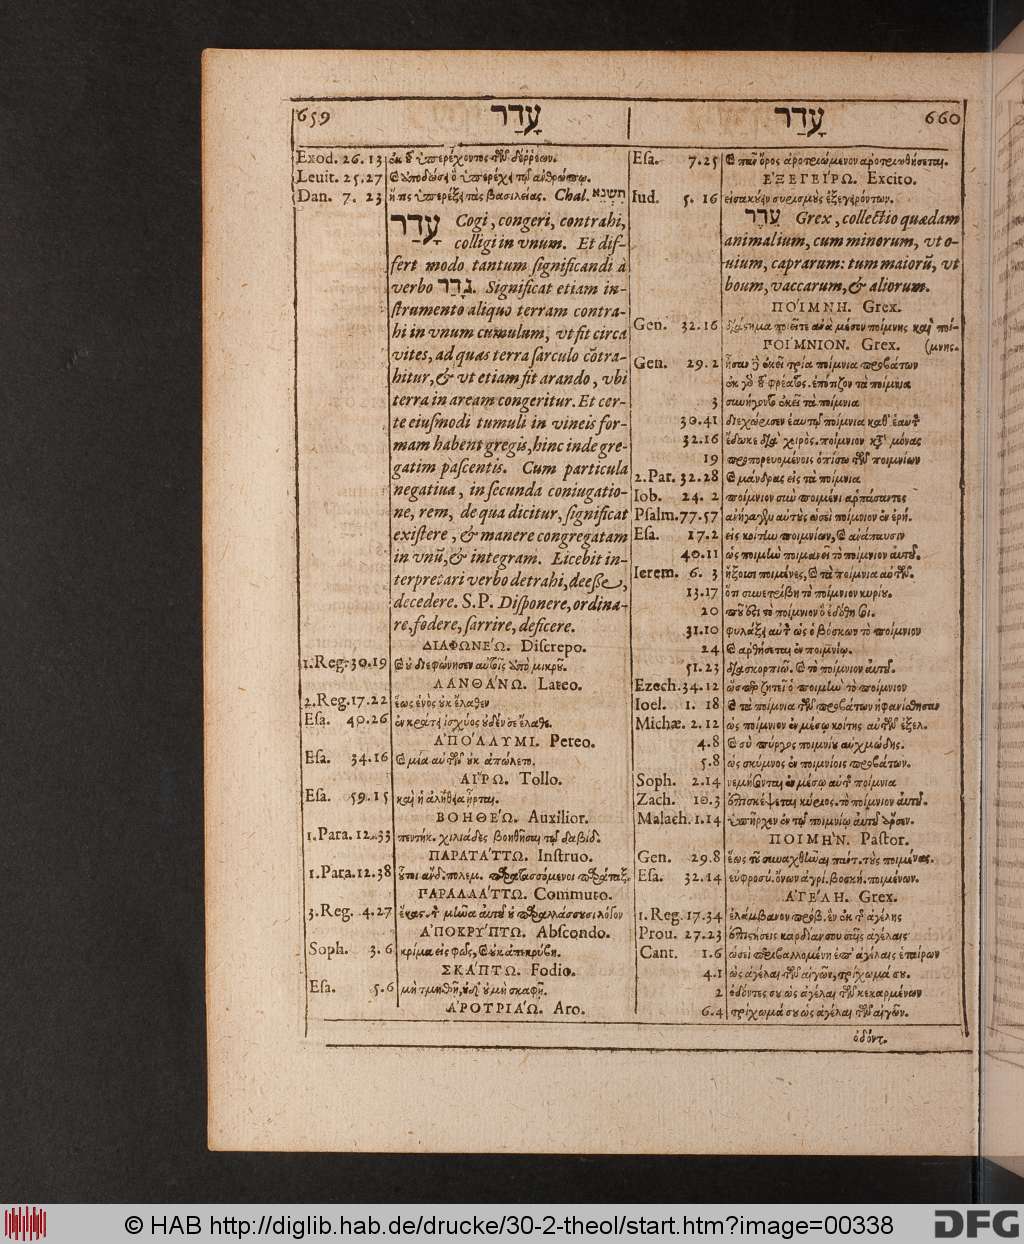 659 עָדַר
Exod. 26.13 ἐκ τοῦ ὑπερέχοντος τῶν δέῤῥεων.
Leuit. 25.27 ὃ ὑπερέχει τῷ ἀνθρώπῳ.
Dan. 7. 23 ἥτις ὑπερέξει πάσας βασιλείας. Chal.
עָדַר Cogi, congeri, contrahi,
colligi in vnum. Et dif-
fert modo tantum ſignificandi à
verbo גָדַר. Significat etiam in-
ſtrumento aliquo terram contra-
hi in vnum cumulum, vt fit circa
vites, ad quas terra ſarculo cõtra-
hitur, & vt etiam fit arando, vbi
terra in aream congeritur. Et cer-
te eiuſmodi tumuli in vineis for-
mam habent gregis, hinc inde gre-
gatim paſcentis. Cum particula
negatiua, in ſecunda coniugatio-
ne, rem, de qua dicitur, ſignificat
exiſtere, & manere congregatam
in vnũ, & integram. Licebit in-
terpretari verbo detrahi, deeſſe,
decedere. S.P. Diſponere, ordina-
re, fodere, ſarrire, deficere.
ΔΙΑΦΩΝΕΏ. Diſcrepo.
1.Reg. 30.19 καὶ οὐ διεφώνησεν αὐτοῖς ἀπὸ μικροῦ.
ΛΑΝΘΆΝΩ. Lateo.
2.Reg. 17.22 ἕως ἑνὸς οὐκ ἔλαθεν
Eſa. 40.26 ἐν κράτει ἰσχύος οὐδέν σε ἔλαθε.
ἈΠΌΛΛΥΜΙ. Pereo.
Eſa. 34.16 καὶ μία αὐτῶν οὐκ ἀπώλετο.
ΑἼΡΩ. Tollo.
Eſa. 59.15 καὶ ἡ ἀλήθεια ἦρται.
ΒΟΗΘΈΩ. Auxilior.
1.Para. 12.33 πεντήκ. χιλιάδες βοηθῆσαι τῷ δαβίδ.
ΠΑΡΑΤΆΤΤΩ. Inſtruo.
1.Para. 12.38 οὗτοι ἄνδ. πολεμ. παρατασσόμενοι παράταξ.
ΠΑΡΑΛΛΆΤΤΩ. Commuto.
3.Reg. 4.27
ἈΠΟΚΡΎΠΤΩ. Abſcondo.
Soph. 3.6 κρίμα εἰς φῶς, καὶ οὐκ ἀπεκρύβη.
ΣΚΆΠΤΩ. Fodio.
Eſa. 5.6 μὴ τμηθῇ, οὐδὲ οὐ μὴ σκαφῇ.
ἈΡΟΤΡΙΆΩ. Aro.
עָדַר 660
Eſa. 7.25 καὶ πᾶν ὄρος ἀροτριώμενον ἀροτριωθήσεται.
ἘΞΕΓΕΊΡΩ. Excito.
Iud. 5. 16 εἰσακούειν συρισμοὺς ἐξεγειρόντων.
עֵדֶר Grex, collectio quædam
animalium, cum minorum, vt o-
uium, caprarum: tum maiorũ, vt
boum, vaccarum, & aliorum.
ΠΟΊΜΝΗ. Grex.
Gen. 32.16 διάστημα ποιεῖτε ἀνὰ μέσον ποίμνης καὶ ποί-
ΠΟΊΜΝΙΟΝ. Grex. (μνης.
Gen. 29.2 ἦσαν δὲ ἐκεῖ τρία ποίμνια προβάτων
ἐκ γὰρ τοῦ φρέατος. ἐπότιζον τὰ ποίμνια
3 συνήγοντο ἐκεῖ τὰ ποίμνια
30.41 διεχώρισεν ἑαυτῷ ποίμνια καθ' ἑαυτὸν
32.16 ἔδωκε διὰ χειρὸς. ποίμνιον κατὰ μόνας
19 προπορευομένοις ὀπίσω τῶν ποιμνίων
2.Par. 32.28 καὶ μάνδρας εἰς τὰ ποίμνια
Iob. 24. 2 ποίμνιον σὺν ποιμένι ἁρπάσαντες
Pſalm. 77.57 ἀνήγαγεν αὐτοὺς ὡσεὶ ποίμνιον ἐν ἐρή.
Eſa. 17.2 εἰς κοίτην ποιμνίων, καὶ ἀνάπαυσιν
40.11 ὡς ποιμὴν ποιμανεῖ τὸ ποίμνιον αὐτοῦ.
Ierem. 6. 3 ἥξουσι ποιμένες, καὶ τὰ ποίμνια αὐτῶν.
13.17 ὅτι συνετρίβη τὸ ποίμνιον κυρίου.
20 ποῦ ἐστι τὸ ποίμνιον ὃ ἐδόθη σοι.
31.10 φυλάξει αὐτὸν ὡς ὁ βόσκων τὸ ποίμνιον
24 καὶ ἀρθήσεται ἐν ποιμνίῳ.
51.23 διασκορπιῶ. καὶ τὸ ποίμνιον αὐτοῦ.
Ezech. 34.12 ὥσπερ ζητεῖ ὁ ποιμὴν τὸ ποίμνιον
Ioel. 1. 18 καὶ τὰ ποίμνια τῶν προβάτων ἠφανίσθησαν
Michæ. 2.12 ὡς ποίμνιον ἐν μέσῳ κοίτης αὐτῶν ἐξελ.
4.8 καὶ σὺ πύργος ποιμνίου αὐχμώδης.
5.8 ὡς σκύμνος ἐν ποιμνίοις προβάτων.
Soph. 2.14 νεμήσονται ἐν μέσῳ αὐτῆς ποίμνια
Zach. 10.3 ἐπισκέψεται κύριος. τὸ ποίμνιον αὐτοῦ.
Malach. 1.14 ὑπῆρχεν ἐν τῷ ποιμνίῳ αὐτοῦ ἄρσεν.
ΠΟΙΜΉΝ. Paſtor.
Gen. 29.8 ἕως τοῦ συναχθῆναι πάντ. τοὺς ποιμένας.
Eſa. 32.14 εὐφροσύ. ὄνων ἀγρί. βοσκή. ποιμένων.
ἈΓΈΛΗ. Grex.
1. Reg. 17.34 ἐλάμβανον πρόβ. ἓν ἐκ τῆς ἀγέλης
Prou. 27.23 ἐπιστήσεις καρδίαν σου σαῖς ἀγέλαις
Cant. 1.6 ὡσεὶ περιβαλλομένη ἐπ' ἀγέλαις ἑταίρων
4.1 ὡς ἀγέλαι τῶν αἰγῶν, τρίχωμά σου.
2 ὀδόντες σου ὡς ἀγέλαι τῶν κεκαρμένων
6.4 τρίχωμά σου ὡς ἀγέλαι τῶν αἰγῶν.
ὀδόντ.
© HAB http://diglib.hab.de/drucke/30-2-theol/start.htm?image=00338
DFG